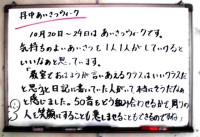 月中あいさつウィーク
10月20日〜24日はあいさつウィークです。
気持ちのよいあいさつを1人1人がしていけると
いいなぁと思っています。
「教室でおはようが言いあえるクラスはいいクラスだ
と思うと日記に書いていた人がいて本当にそうだなぁ
と感じました。50音をどう組み合わせるかで、周りの
人を笑顔にすることも悲しませることもできるのですね！